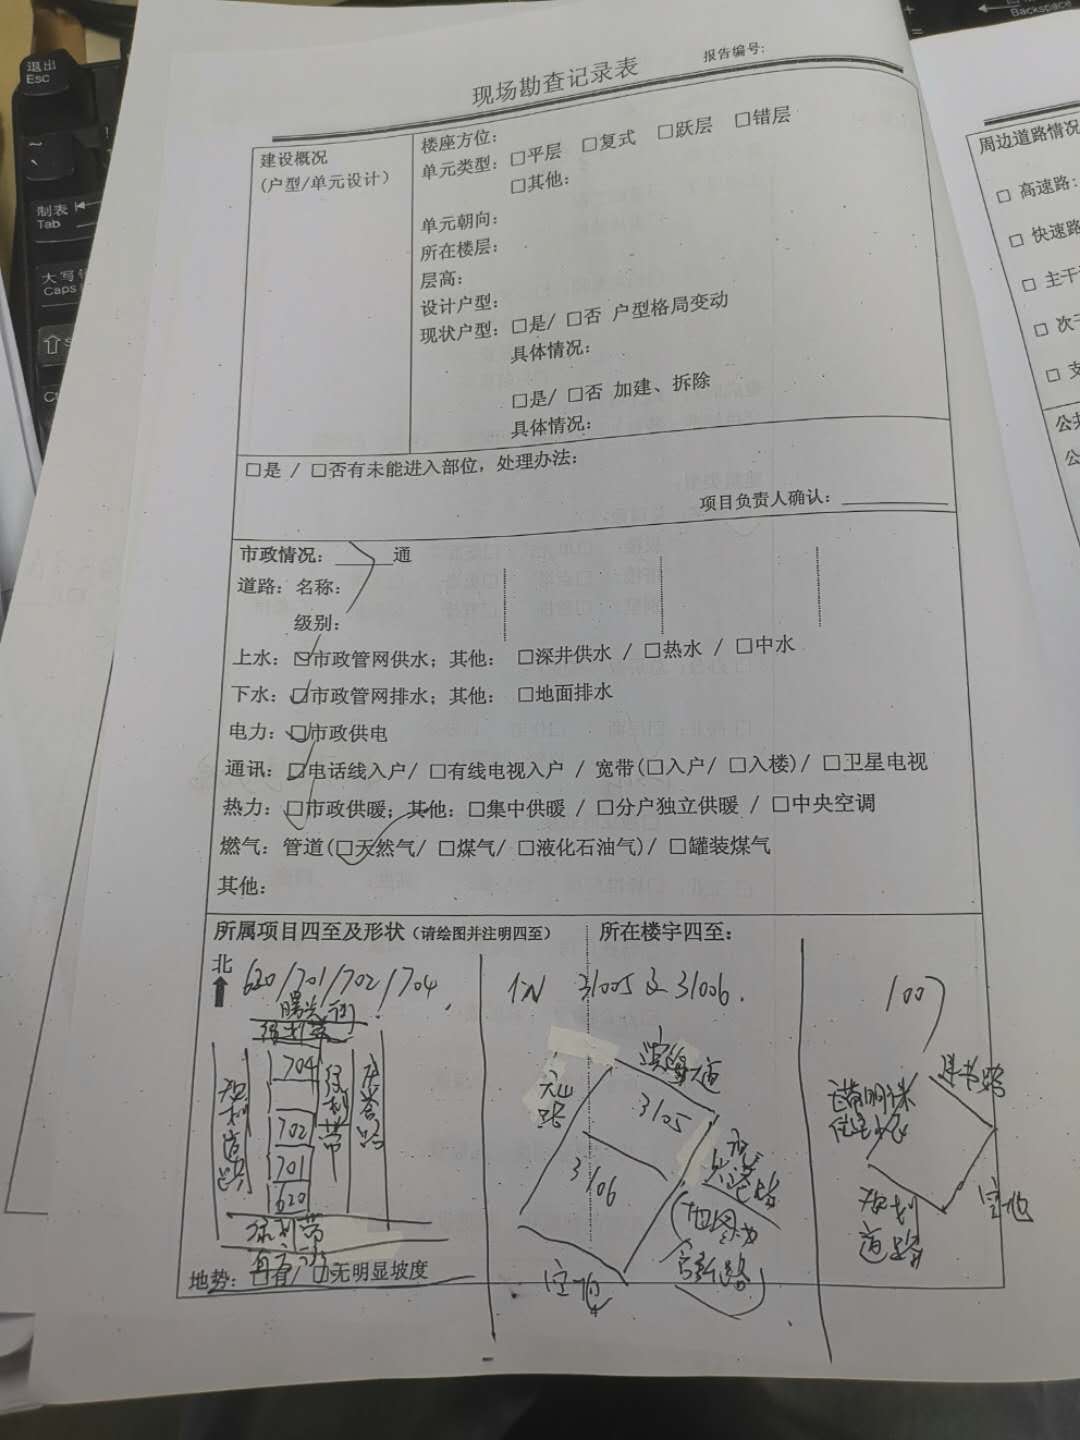 现场勘查记录表
报告编号:
建设概况
(户型/单元设计)
楼座方位:
单元类型: □平层 □复式 □跃层 □错层
□其他:
单元朝向:
所在楼层:
层高:
设计户型:
现状户型: □是/ □否 户型格局变动
具体情况:
□是/ □否 加建、拆除
具体情况:
□是 / □否有未能进入部位, 处理办法:
项目负责人确认:
市政情况: ______通
道路: 名称:
级别:
上水: □市政管网供水; 其他: □深井供水 / □热水 / □中水
下水: □市政管网排水; 其他: □地面排水
电力: □市政供电
通讯: □电话线入户/ □有线电视入户 / 宽带(□入户/ □入楼)/ □卫星电视
热力: □市政供暖; 其他: □集中供暖 / □分户独立供暖 / □中央空调
燃气: 管道(□天然气/ □煤气/ □液化石油气)/ □罐装煤气
其他:
所属项目四至及形状 (请绘图并注明四至)
所在楼宇四至:
北
620/701/702/704
曙光街
绿划带
704
702
701
620
绿划带
规划道路
绿划带
地势: □有/ □无明显坡度
31005 及 31006.
滨海大道
3105
3106
空地
1007
空地
规划道路
周边道路情况
□ 高速路:
□ 快速路
□ 主干
□ 次干
□ 支
公共
公
退出
Esc
制表
Tab
大写
Caps
Backspace